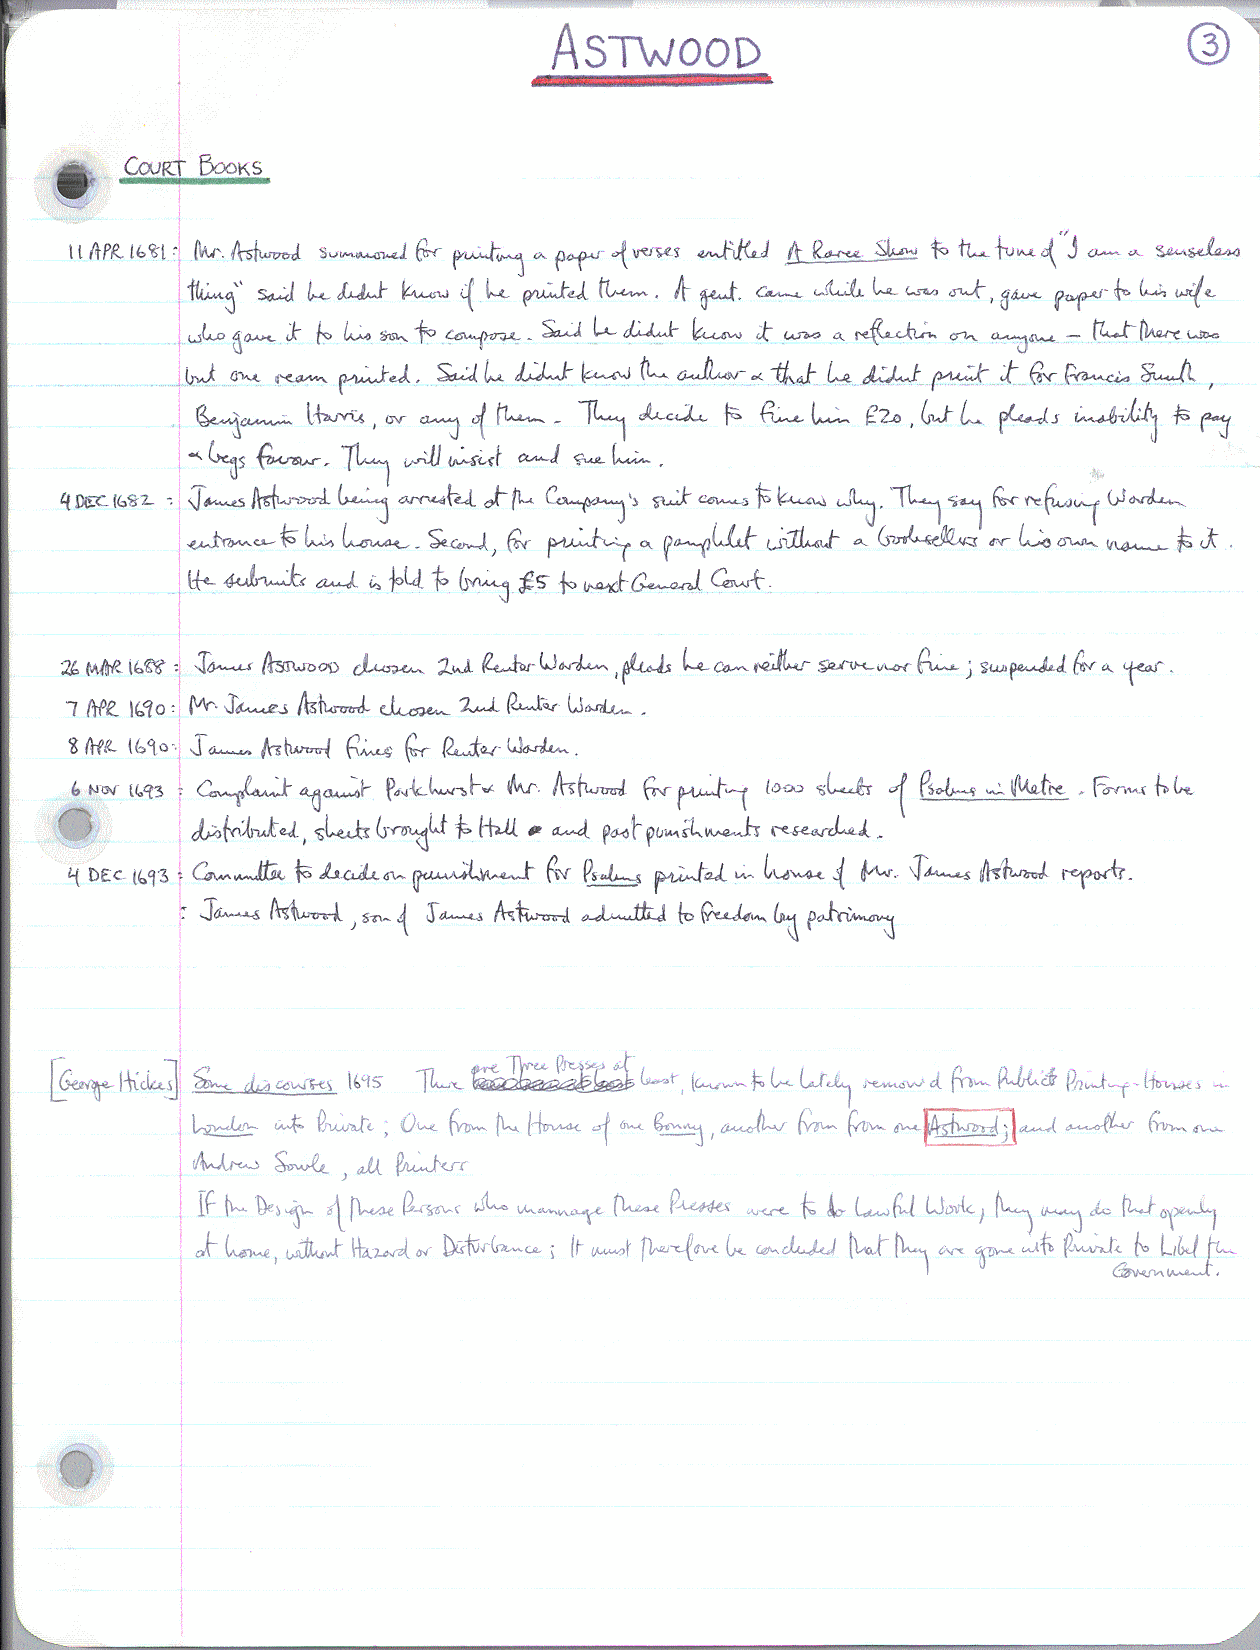 ASTWOOD
3
COURT BOOKS
11 APR 1681: Mr. Astwood summoned for printing a paper of verses entitled A Raree Show to the tune of "I am a senseless
thing" said he didnt know if he printed them. A gent. came while he was out, gave paper to his wife
who gave it to his son to compose. Said he didnt know it was a reflection on anyone – that there was
but one ream printed. Said he didnt know the author & that he didnt print it for Francis Smith,
Benjamin Harris, or any of them. They decide to fine him £20, but he pleads inability to pay
& begs favour. They will insist and sue him.
4 DEC 1682: James Astwood being arrested at the Company's suit comes to know why. They say for refusing Warden
entrance to his house. Second, for printing a pamphlet without a booksellers or his own name to it.
He submits and is told to bring £5 to next General Court.
26 MAR 1688: James ASTWOOD chosen 2nd Renter Warden, pleads he can neither serve nor fine; suspended for a year.
7 APR 1690: Mr. James Astwood chosen 2nd Renter Warden.
8 APR 1690: James Astwood fines for Renter Warden.
6 NOV 1693: Complaint against Parkhurst & Mr. Astwood for printing 1000 sheets of Psalms in Metre. Forms to be
distributed, sheets brought to Hall and past punishments researched.
4 DEC 1693: Committee to decide on punishment for Psalms printed in house of Mr. James Astwood reports.
: James Astwood, son of James Astwood admitted to freedom by patrimony
[George Hickes] Some discourses 1695 There are Three Presses at least, known to be lately remov'd from Publick Printing-Houses in
London into Private; One from the House of one Bonny, another from from one Astwood; and another from one
Andrew Sowle, all Printers
If the Design of these Persons who mannage these Presses were to do Lawful Work, they may do that openly
at home, without Hazard or Disturbance; It must therefore be concluded that they are gone into Private to Libel the
Government.